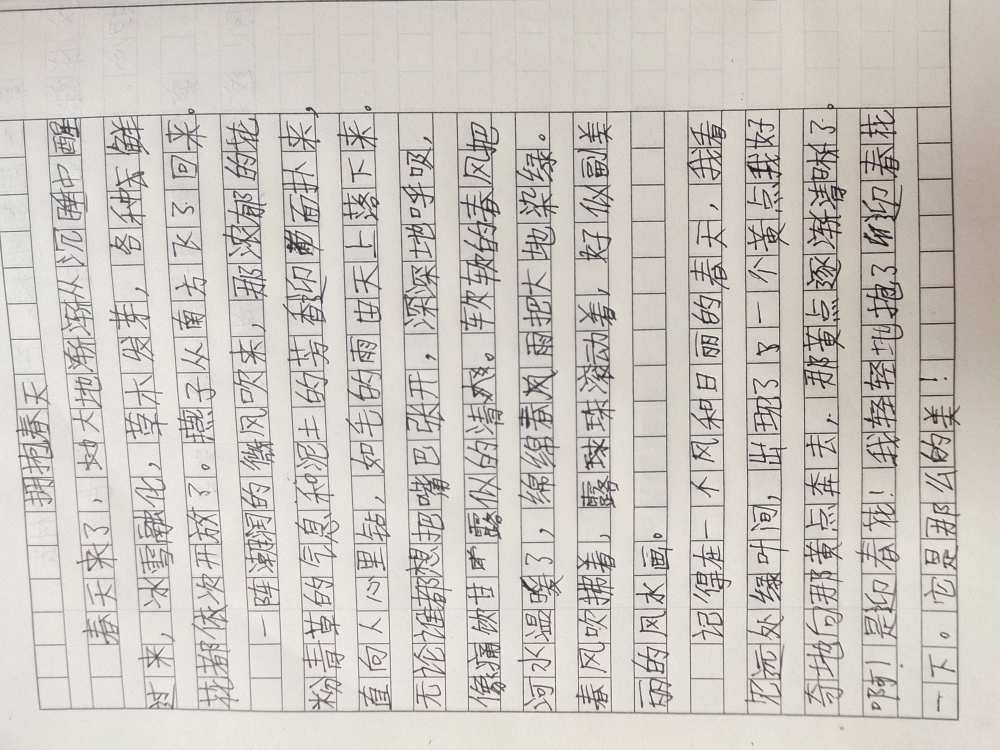 拥抱春天
春天来了，大地渐渐从沉睡中醒
过来，冰雪融化，草木发芽，各种鲜
花都依次开放了。燕子从南方飞了回来。
一阵潮润的微风吹来，那浓郁的花
粉青草的气息和泥土的芳香迎面扑来，
直向人心里钻，如毛的雨由天上落下来
无论谁都想把嘴巴张开，深深地呼吸，
像痛饮甘露似的清爽。软软的春风把
河水温暖了，绵绵春雨把大地染绿。
春风吹拂着，露珠滚动着，好似副美
丽的风水画。
记得在一个风和日丽的春天，我看
见远处绿叶间，出现了一个黄点我好
奇地向那黄点奔去，那黄点逐渐清晰了
啊！是迎春花！我轻轻地抱了迎春花
一下。它是那么的美！